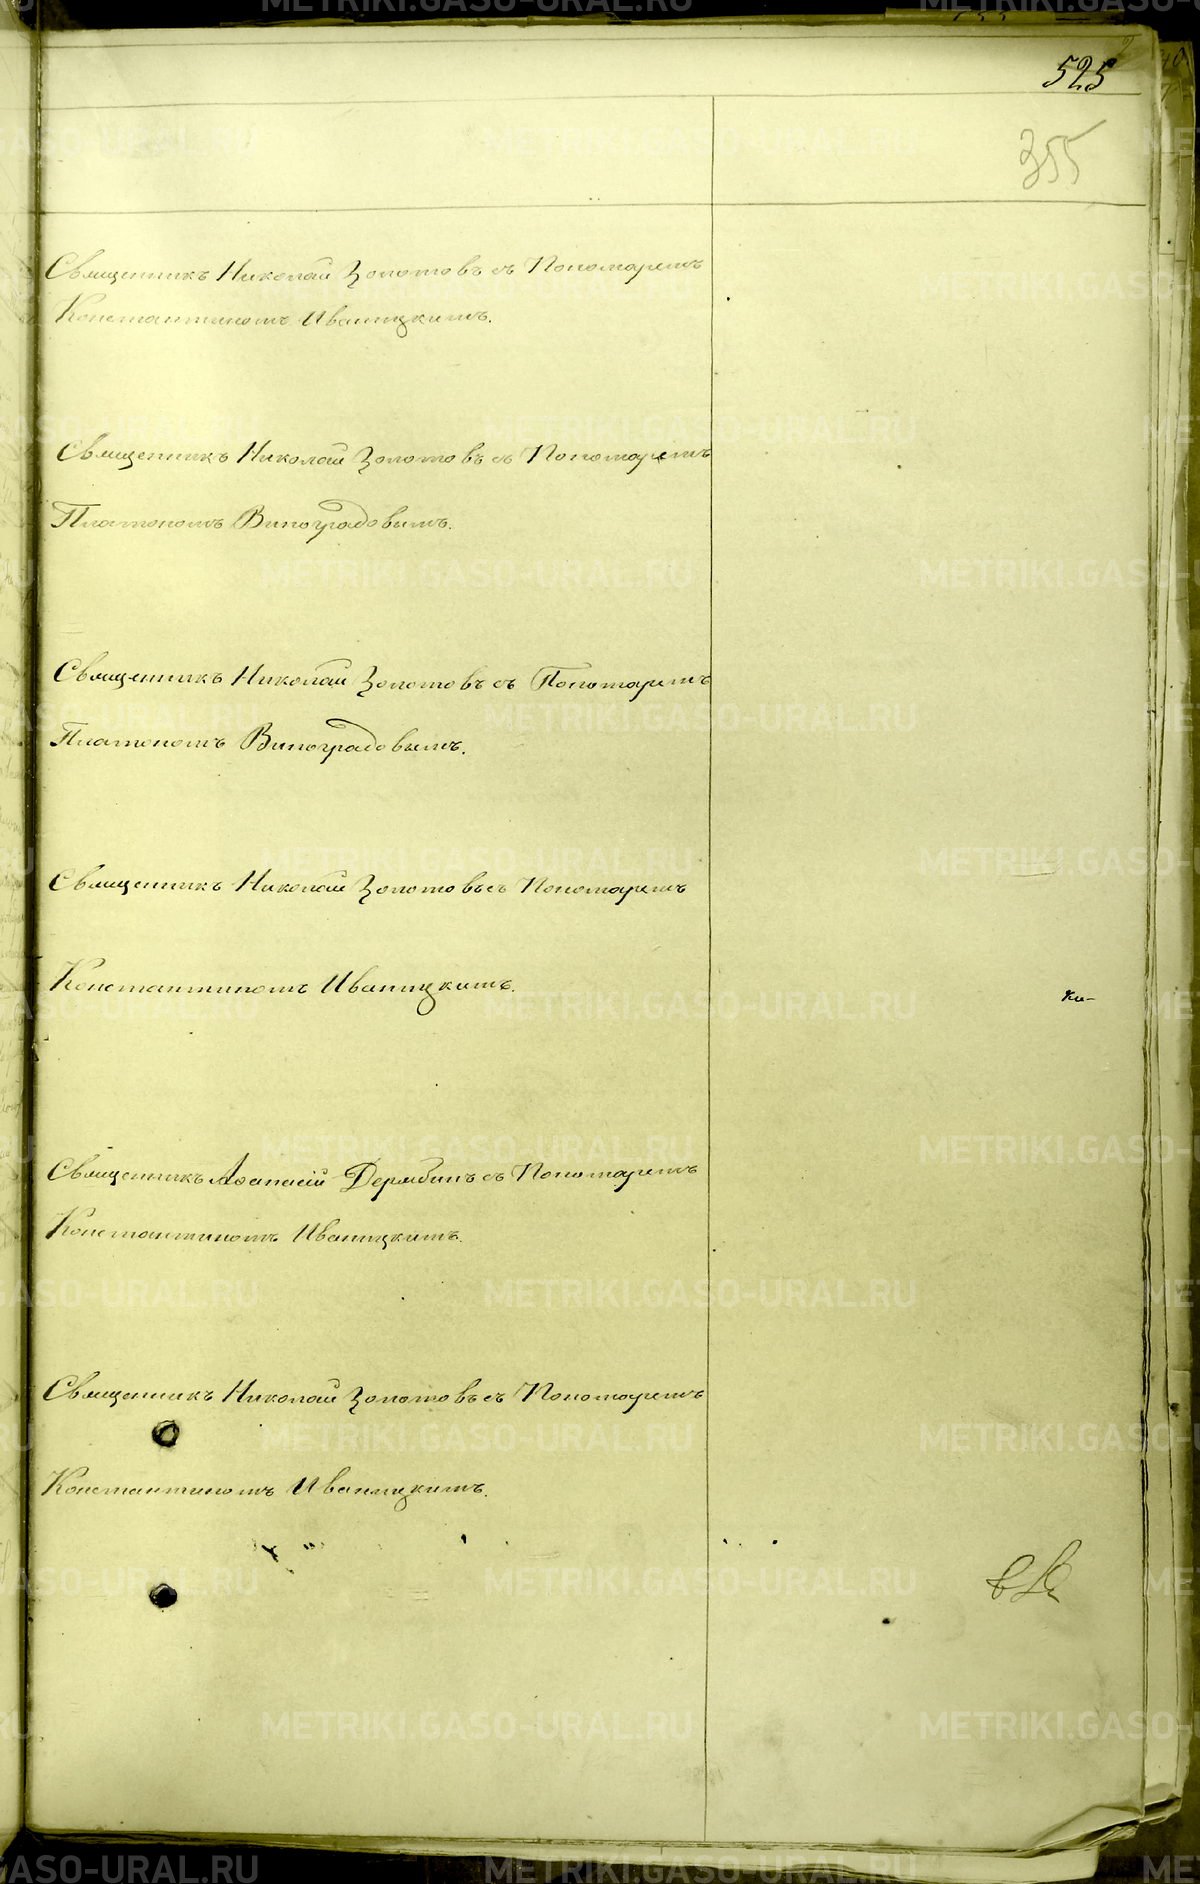 525
355
Священникъ Николай Золотовъ съ Пономаремъ
Константиномъ Иваницкимъ.
Священникъ Николай Золотовъ съ Пономаремъ
Платономъ Виноградовымъ.
Священникъ Николай Золотовъ съ Пономаремъ
Платономъ Виноградовымъ.
Священникъ Николай Золотовъ съ Пономаремъ
Константиномъ Иваницкимъ.
Священникъ Аѳанасій Дерябинъ съ Пономаремъ
Константиномъ Иваницкимъ.
Священникъ Николай Золотовъ съ Пономаремъ
Константиномъ Иваницкимъ.
METRIKI.GASO-URAL.RU